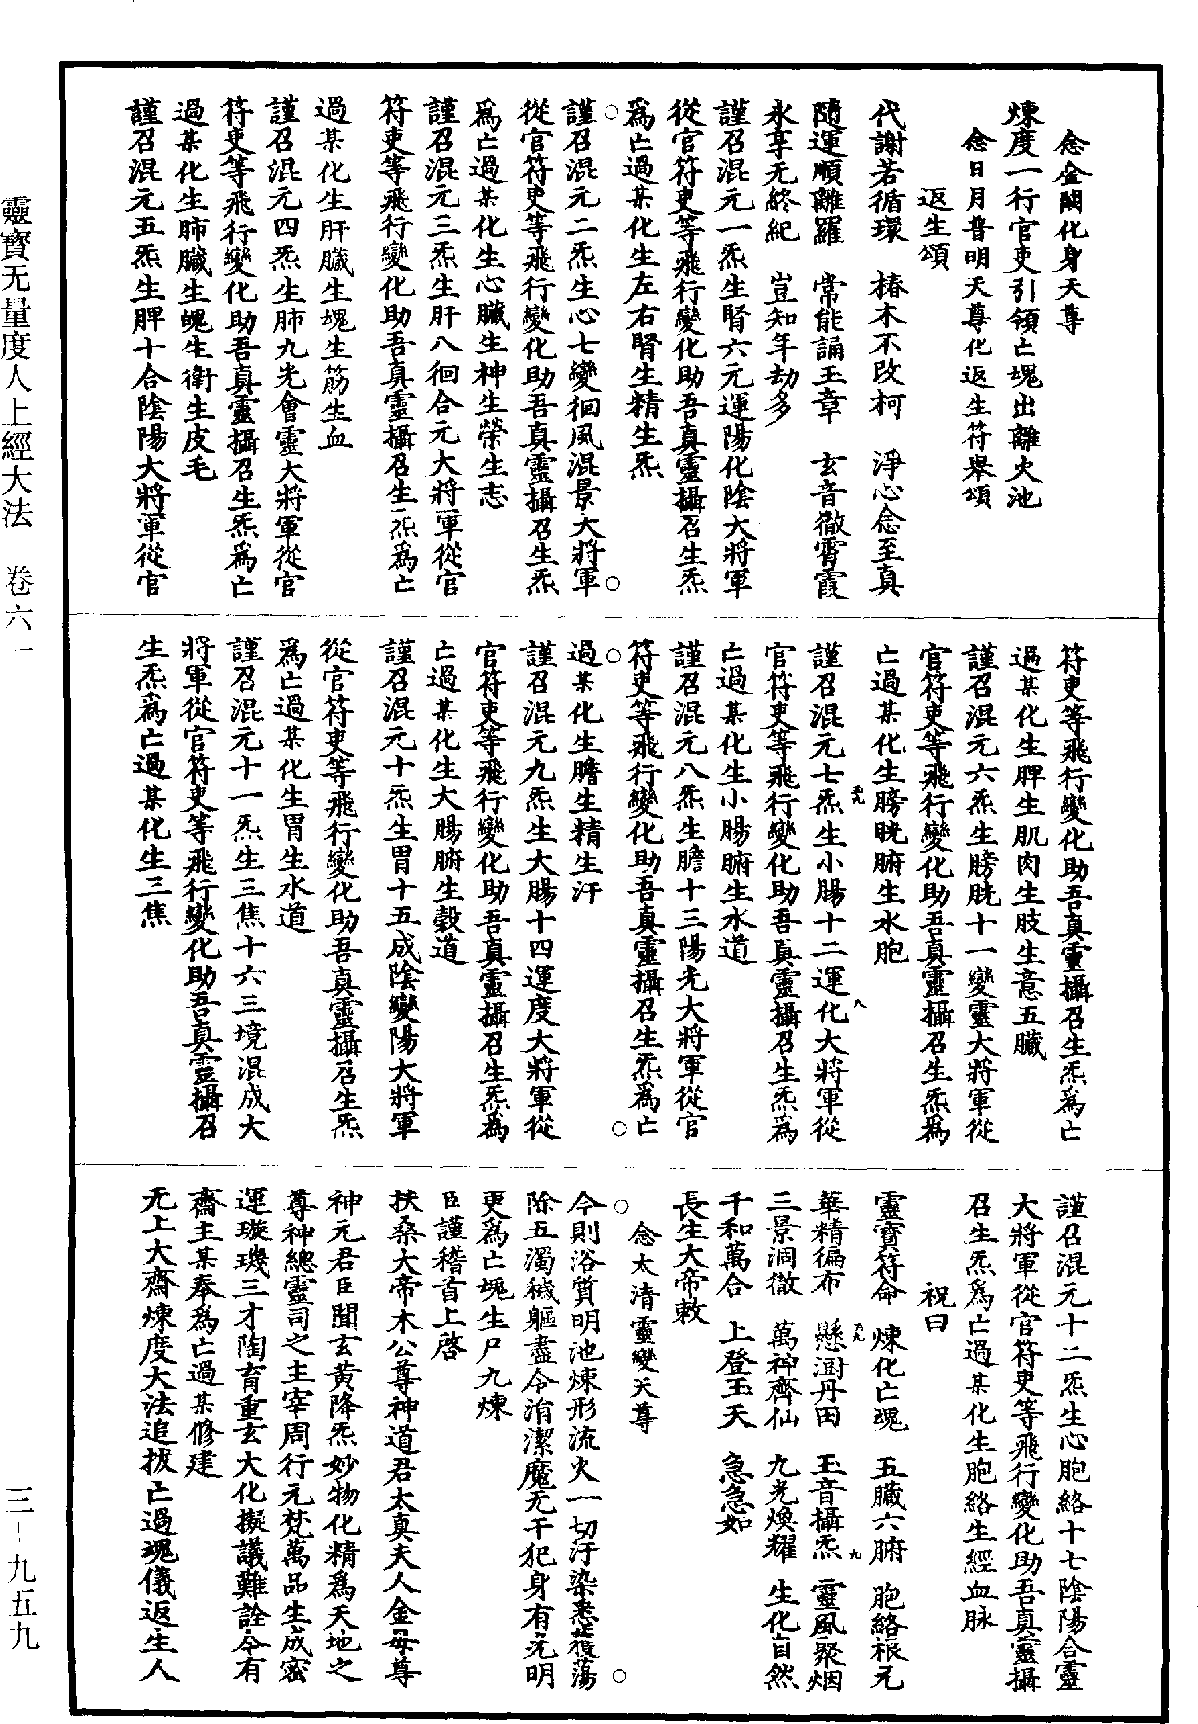 念金闕化身天尊
煉度一行官吏引領亡魂出離火池
念日月普明天尊化返生符舉頌
返生頌
代謝若循環　椿木不改柯　淨心念至真
隨運順離羅　常能誦玉章　玄音徹霄霞
永享无終紀　豈知年劫多
謹召混元一炁生腎六元運陽化陰大將軍
從官符吏等飛行變化助吾真靈攝召生炁
為亡過某化生左右腎生精生炁
○　○
謹召混元二炁生心七變徊風混景大將軍
從官符吏等飛行變化助吾真靈攝召生炁
為亡過某化生心臟生神生榮生志
謹召混元三炁生肝八徊合元大將軍從官
符吏等飛行變化助吾真靈攝召生炁為亡
過某化生肝臟生魂生筋生血
謹召混元四炁生肺九光會靈大將軍從官
符吏等飛行變化助吾真靈攝召生炁為亡
過某化生肺臟生魄生衛生皮毛
謹召混元五炁生脾十合陰陽大將軍從官
符吏等飛行變化助吾真靈攝召生炁為亡
過某化生脾生肌肉生肢生意五臟
謹召混元六炁生膀胱十一變靈大將軍從
官符吏等飛行變化助吾真靈攝召生炁為
亡過某化生膀胱腑生水胞
謹召混元七炁生小腸十二運化大將軍從
官符吏等飛行變化助吾真靈攝召生炁為
亡過某化生小腸腑生水道
謹召混元八炁生膽十三陽光大將軍從官
符吏等飛行變化助吾真靈攝召生炁為亡
○　○
過某化生膽生精生汗
謹召混元九炁生大腸十四運度大將軍從
官符吏等飛行變化助吾真靈攝召生炁為
亡過某化生大腸腑生穀道
謹召混元十炁生胃十五成陰變陽大將軍
從官符吏等飛行變化助吾真靈攝召生炁
為亡過某化生胃生水道
謹召混元十一炁生三焦十六三境混成大
將軍從官符吏等飛行變化助吾真靈攝召
生炁為亡過某化生三焦
謹召混元十二炁生心胞絡十七陰陽合靈
大將軍從官符吏等飛行變化助吾真靈攝
召生炁為亡過某化生胞絡生經血脉
祝曰
靈寶符命　煉化亡魂　五臟六腑　胞絡根元
華精徧布　懸溷丹田　玉音攝炁　靈風聚烟
三景洞徹　萬神齊仙　九光煥耀　生化自然
千和萬合　上登玉天　急急如
長生大帝敕
念太清靈變天尊
○　○
今則浴質明池煉形流火一切汙染悉蕩
除五濁穢軀盡令消潔魔无干犯身有元明
更為亡魂生尸九煉
臣謹稽首上啓
扶桑大帝木公尊神道君太真夫人金母尊
神元君臣聞玄黃降炁妙物化精為天地之
尊神總靈司之主宰周行元梵萬品生成密
運璇璣三才陶育重玄大化擬議難詮今有
齋主某奉為亡過某修建
无上大齋煉度大法追拔亡過魂儀返生人
靈寶无量度人上經大法　卷六一
三-九五九